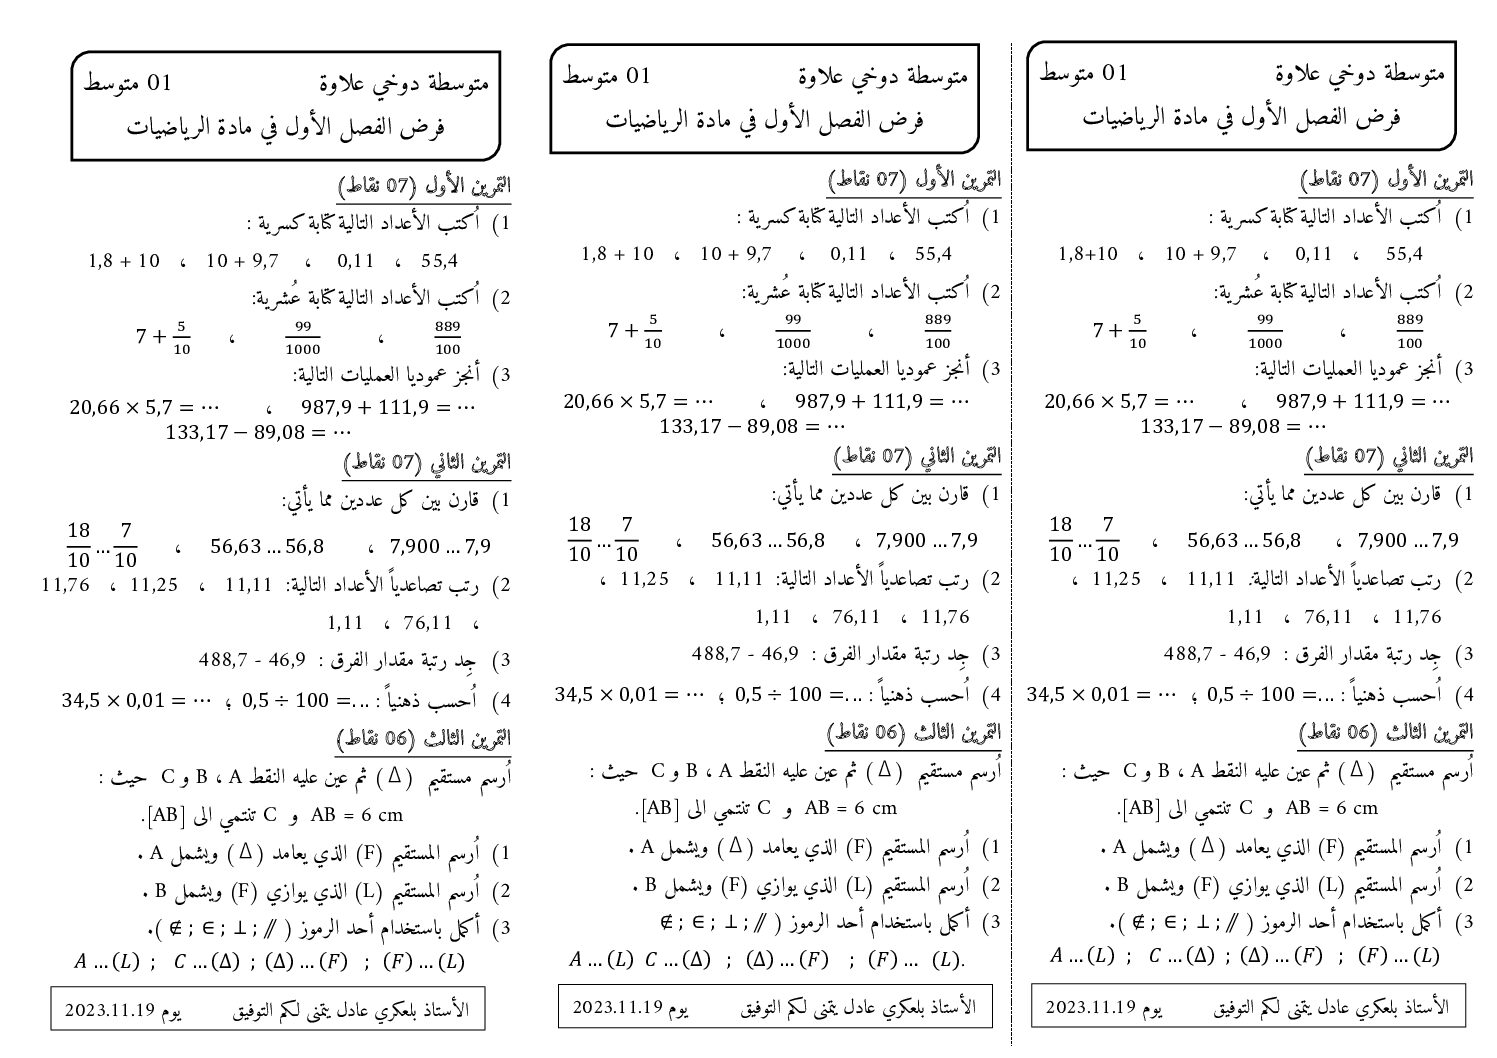 متوسطة دوخي علاوة 01 متوسط
فرض الفصل الأول في مادة الرياضيات
التمرين الأول (07 نقاط)
1) أُكتب الأعداد التالية كتابة كسرية :
55,4 ، 0,11 ، 10 + 9,7 ، 1,8+10
2) أُكتب الأعداد التالية كتابة عُشرية:
889/100 ، 99/1000 ، 7 + 5/10
3) أنجز عموديا العمليات التالية:
987,9 + 111,9 = ⋯ ، 20,66 × 5,7 = ⋯
133,17 − 89,08 = ⋯
التمرين الثاني (07 نقاط)
1) قارن بين كل عددين مما يأتي:
7,900 … 7,9 ، 56,63 … 56,8 ، 18/10 … 7/10
2) رتب تصاعدياً الأعداد التالية: 11,11 ، 11,25 ،
11,76 ، 76,11 ، 1,11
3) جِد رتبة مقدار الفرق : 46,9 - 488,7
4) اُحسب ذهنياً : 0,5 ÷ 100 =… ؛ 34,5 × 0,01 = ⋯
التمرين الثالث (06 نقاط)
اُرسم مستقيم (Δ) ثم عين عليه النقط A ، B و C حيث :
AB = 6 cm و C تنتمي الى [AB].
1) اُرسم المستقيم (F) الذي يعامد (Δ) ويشمل A .
2) اُرسم المستقيم (L) الذي يوازي (F) ويشمل B .
3) أكمل باستخدام أحد الرموز ( ∉ ; ∈ ; ⊥ ; // ).
A … (L) ; C … (Δ) ; (Δ) … (F) ; (F) … (L)
الأستاذ بلعكري عادل يتمنى لكم التوفيق يوم 2023.11.19
متوسطة دوخي علاوة 01 متوسط
فرض الفصل الأول في مادة الرياضيات
التمرين الأول (07 نقاط)
1) أُكتب الأعداد التالية كتابة كسرية :
55,4 ، 0,11 ، 10 + 9,7 ، 1,8 + 10
2) أُكتب الأعداد التالية كتابة عُشرية:
889/100 ، 99/1000 ، 7 + 5/10
3) أنجز عموديا العمليات التالية:
987,9 + 111,9 = ⋯ ، 20,66 × 5,7 = ⋯
133,17 − 89,08 = ⋯
التمرين الثاني (07 نقاط)
1) قارن بين كل عددين مما يأتي:
7,900 … 7,9 ، 56,63 … 56,8 ، 18/10 … 7/10
2) رتب تصاعدياً الأعداد التالية: 11,11 ، 11,25 ،
11,76 ، 76,11 ، 1,11
3) جِد رتبة مقدار الفرق : 46,9 - 488,7
4) اُحسب ذهنياً : 0,5 ÷ 100 =… ؛ 34,5 × 0,01 = ⋯
التمرين الثالث (06 نقاط)
اُرسم مستقيم (Δ) ثم عين عليه النقط A ، B و C حيث :
AB = 6 cm و C تنتمي الى [AB].
1) اُرسم المستقيم (F) الذي يعامد (Δ) ويشمل A .
2) اُرسم المستقيم (L) الذي يوازي (F) ويشمل B .
3) أكمل باستخدام أحد الرموز ( ∉ ; ∈ ; ⊥ ; //
A … (L) C … (Δ) ; (Δ) … (F) ; (F) … (L).
الأستاذ بلعكري عادل يتمنى لكم التوفيق يوم 2023.11.19
متوسطة دوخي علاوة 01 متوسط
فرض الفصل الأول في مادة الرياضيات
التمرين الأول (07 نقاط)
1) أُكتب الأعداد التالية كتابة كسرية :
55,4 ، 0,11 ، 10 + 9,7 ، 1,8 + 10
2) أُكتب الأعداد التالية كتابة عُشرية:
889/100 ، 99/1000 ، 7 + 5/10
3) أنجز عموديا العمليات التالية:
987,9 + 111,9 = ⋯ ، 20,66 × 5,7 = ⋯
133,17 − 89,08 = ⋯
التمرين الثاني (07 نقاط)
1) قارن بين كل عددين مما يأتي:
7,900 … 7,9 ، 56,63 … 56,8 ، 18/10 … 7/10
2) رتب تصاعدياً الأعداد التالية: 11,11 ، 11,25 ، 11,76
، 76,11 ، 1,11
3) جِد رتبة مقدار الفرق : 46,9 - 488,7
4) اُحسب ذهنياً : 0,5 ÷ 100 =… ؛ 34,5 × 0,01 = ⋯
التمرين الثالث (06 نقاط)
اُرسم مستقيم (Δ) ثم عين عليه النقط A ، B و C حيث :
AB = 6 cm و C تنتمي الى [AB].
1) اُرسم المستقيم (F) الذي يعامد (Δ) ويشمل A .
2) اُرسم المستقيم (L) الذي يوازي (F) ويشمل B .
3) أكمل باستخدام أحد الرموز ( ∉ ; ∈ ; ⊥ ; // ).
A … (L) ; C … (Δ) ; (Δ) … (F) ; (F) … (L)
الأستاذ بلعكري عادل يتمنى لكم التوفيق يوم 2023.11.19